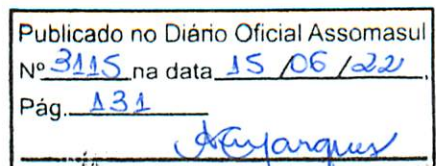 Publicado no Diário Oficial Assomasul
Nº 3115 na data 15 / 06 / 22.
Pág. 131